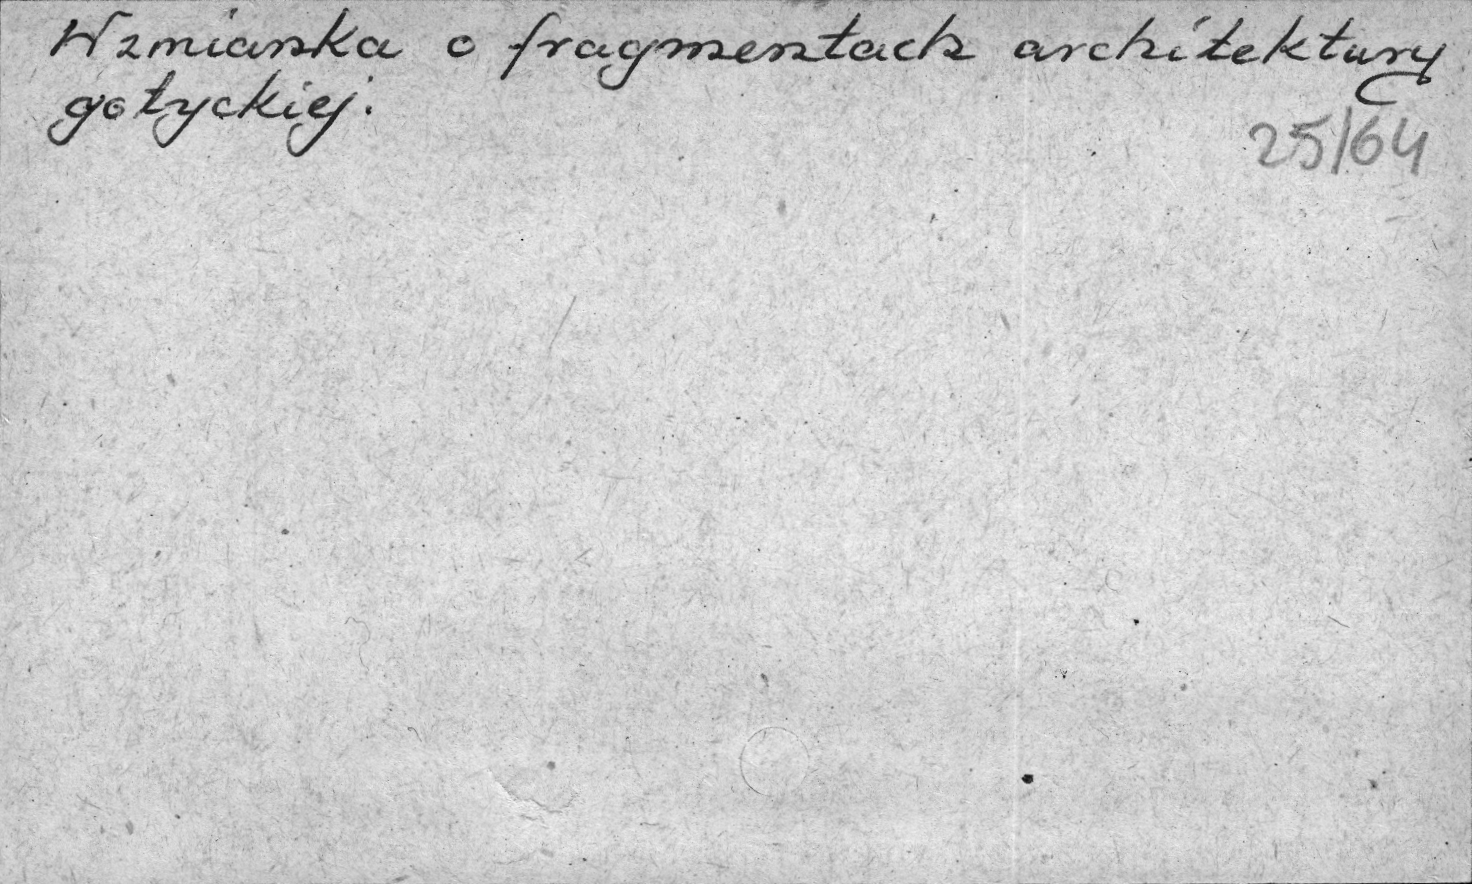 Wzmianka o fragmentach architektury
gotyckiej.
25/64